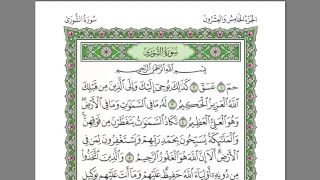 سُورَةُ الشُّورَىٰ
الجُزْءُ الخَامِسُ وَالعِشْرُونَ
سُورَةُ الشُّورَىٰ
بِسْمِ اللَّهِ الرَّحْمَٰنِ الرَّحِيمِ
حمٓ ١ عٓسٓقٓ ٢ كَذَٰلِكَ يُوحِىٓ إِلَيْكَ وَإِلَى ٱلَّذِينَ مِن قَبْلِكَ
ٱللَّهُ ٱلْعَزِيزُ ٱلْحَكِيمُ ٣ لَهُۥ مَا فِى ٱلسَّمَٰوَٰتِ وَمَا فِى ٱلْأَرْضِ
وَهُوَ ٱلْعَلِىُّ ٱلْعَظِيمُ ٤ تَكَادُ ٱلسَّمَٰوَٰتُ يَتَفَطَّرْنَ مِن فَوْقِهِنَّ
وَٱلْمَلَٰٓئِكَةُ يُسَبِّحُونَ بِحَمْدِ رَبِّهِمْ وَيَسْتَغْفِرُونَ لِمَن فِى
ٱلْأَرْضِ أَلَآ إِنَّ ٱللَّهَ هُوَ ٱلْغَفُورُ ٱلرَّحِيمُ ٥ وَٱلَّذِينَ ٱتَّخَذُوا۟
مِن دُونِهِۦٓ أَوْلِيَآءَ ٱللَّهُ حَفِيظٌ عَلَيْهِمْ وَمَآ أَنتَ عَلَيْهِم بِوَكِيلٍ